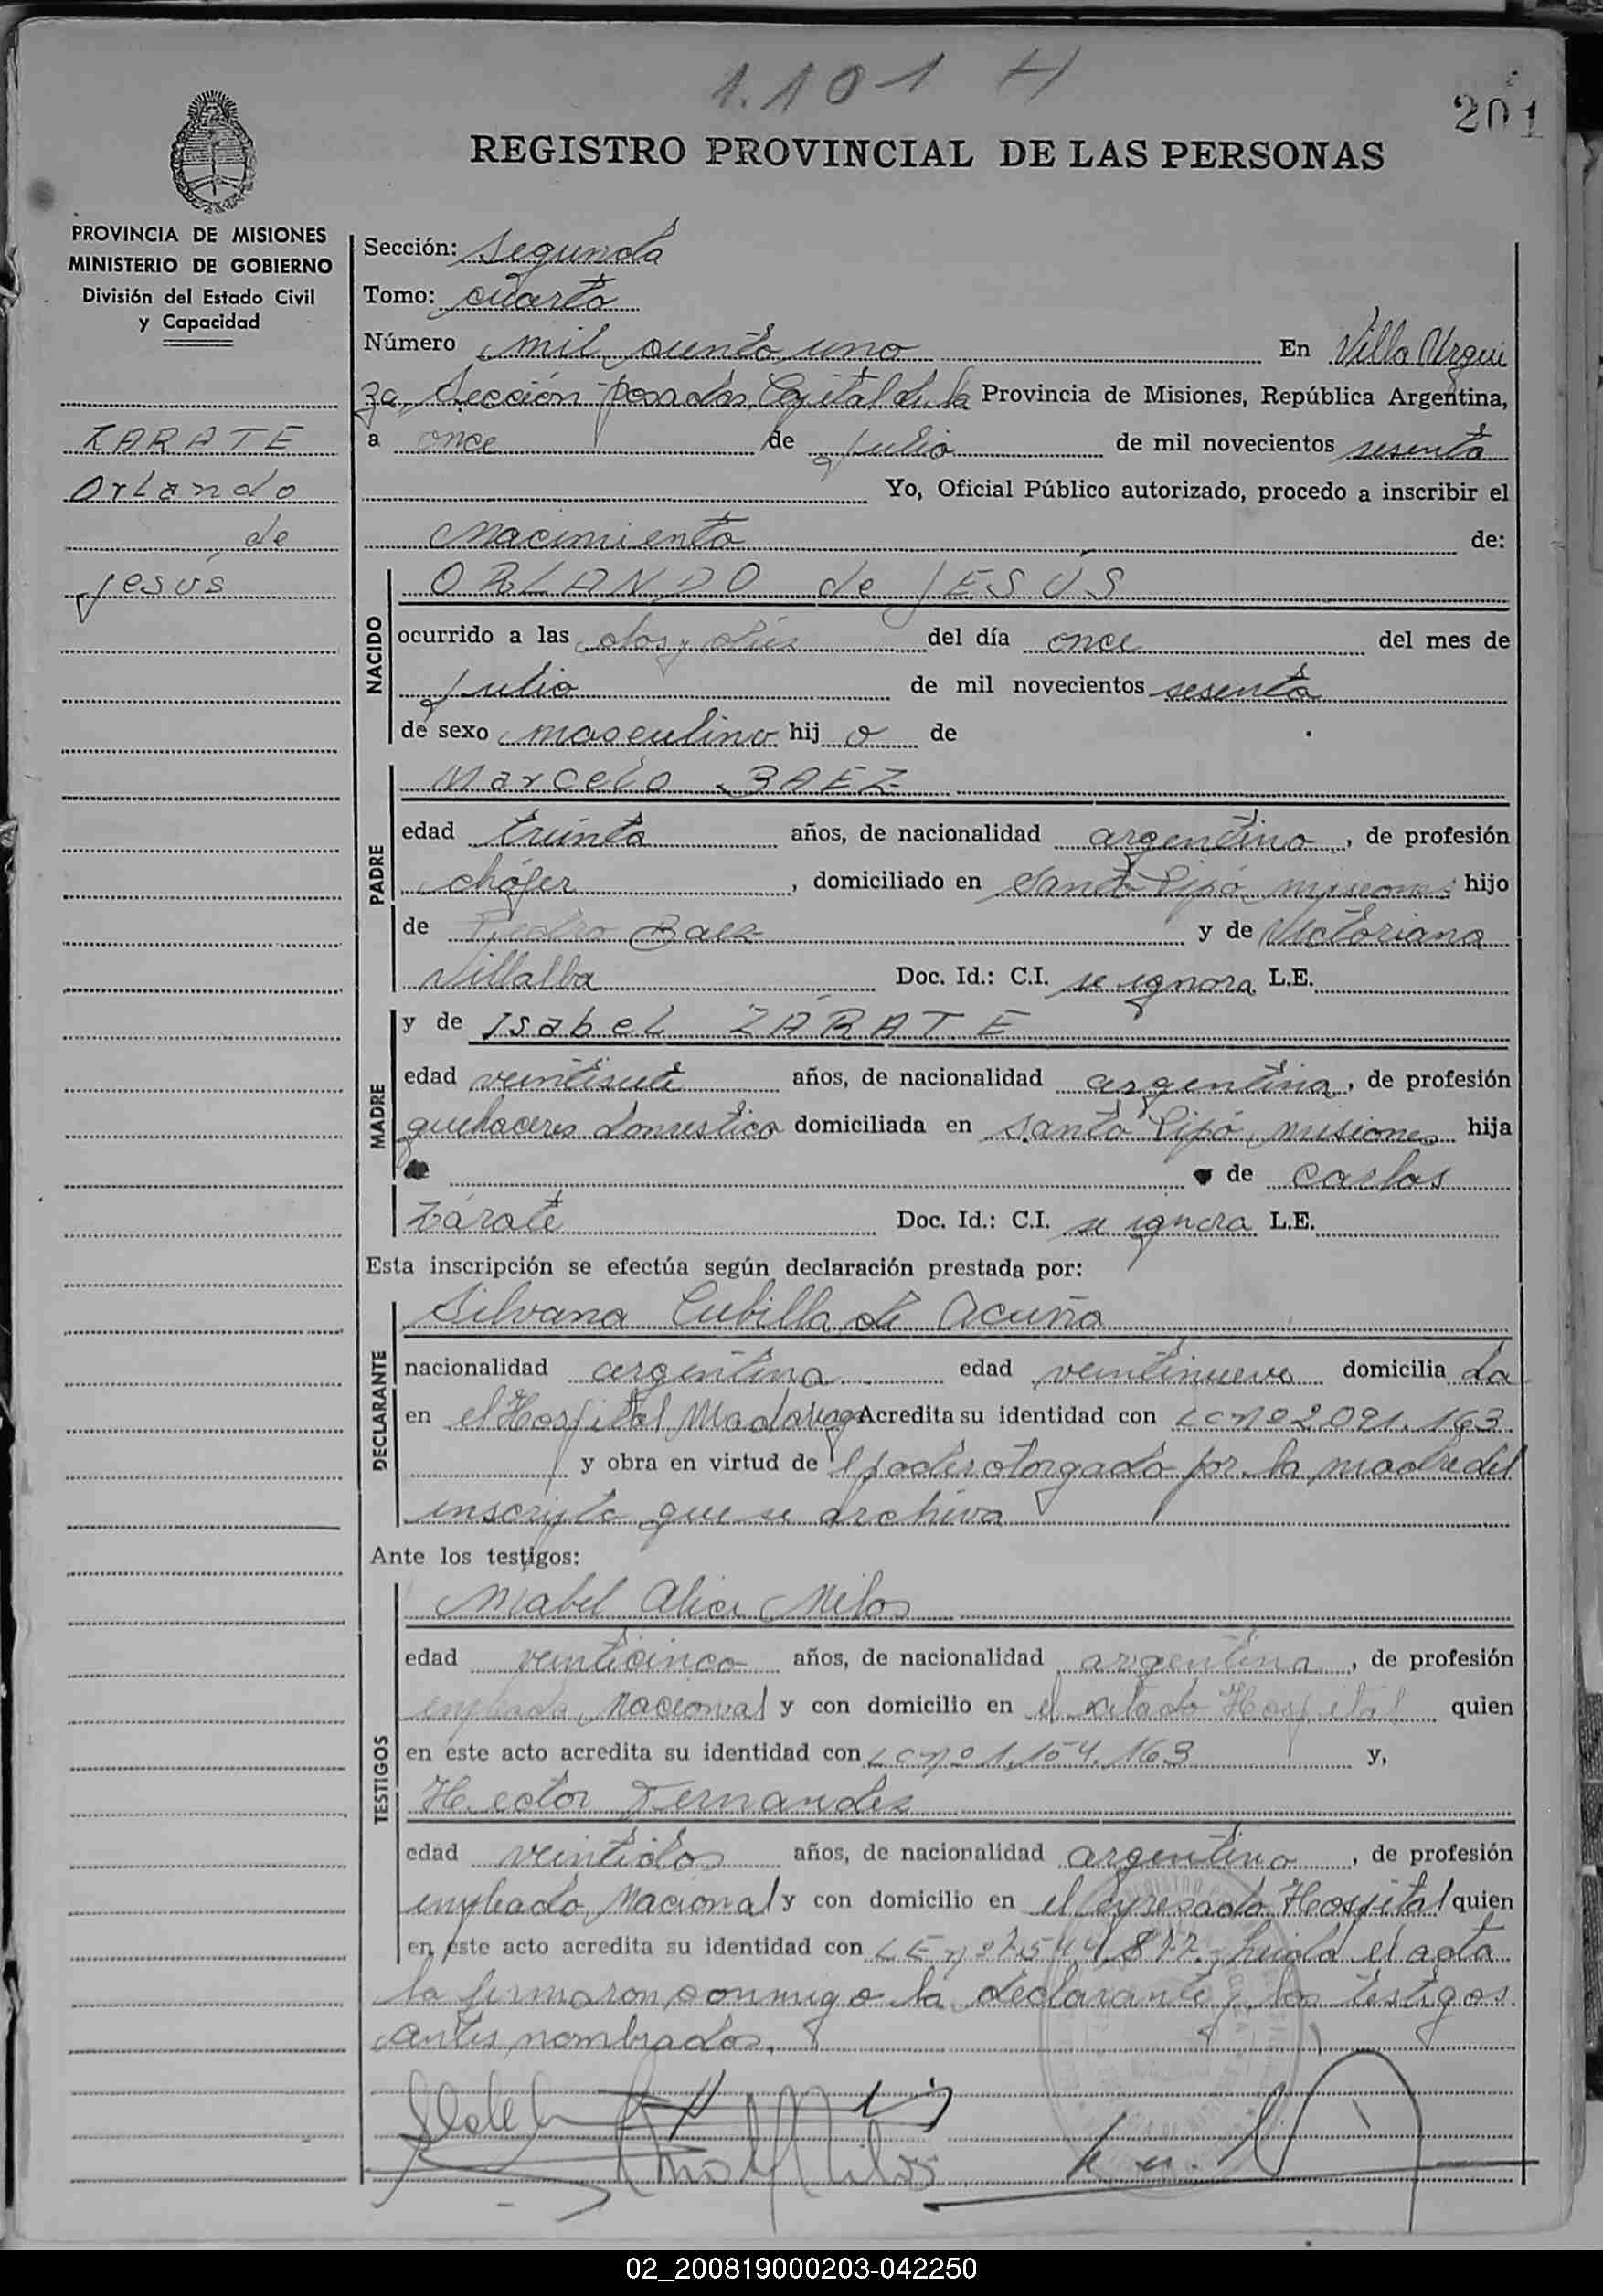 1.101 H
201
REGISTRO PROVINCIAL DE LAS PERSONAS
PROVINCIA DE MISIONES
MINISTERIO DE GOBIERNO
División del Estado Civil
y Capacidad
ZARATE
Orlando
de
Jesús
Sección: Segunda
Tomo: cuarto
Número mil ciento uno En Villa Urqui
za, Sección Posadas, Capital de la Provincia de Misiones, República Argentina,
a once de Julio de mil novecientos sesenta
Yo, Oficial Público autorizado, procedo a inscribir el
Nacimiento de:
NACIDO
ORLANDO de JESÚS
ocurrido a las dos y diez del día once del mes de
Julio de mil novecientos sesenta
de sexo masculino hij o de
PADRE
Marcelo BAEZ
edad treinta años, de nacionalidad argentino, de profesión
chófer, domiciliado en Santo Pipó, misiones hijo
de Pedro Baez y de Victoriana
Villalba Doc. Id.: C.I. se ignora L.E.
MADRE
y de Isabel ZÁRATE
edad veintisiete años, de nacionalidad argentina, de profesión
quehaceres domestico domiciliada en Santo Pipó, misiones hija
de Carlos
Zárate Doc. Id.: C.I. se ignora L.E.
Esta inscripción se efectúa según declaración prestada por:
DECLARANTE
Silvana Cubilla de Acuña
nacionalidad argentina edad veintinueve domicilia da
en el Hospital Madariaga Acredita su identidad con LC nº 2.091.163
y obra en virtud de l poder otorgado por la madre del
inscripto que se archiva
Ante los testigos:
TESTIGOS
Mabel Alice Milos
edad veinticinco años, de nacionalidad argentina, de profesión
empleada Nacional y con domicilio en el citado Hospital quien
en este acto acredita su identidad con LC nº 1.154.163 y,
Hector Fernandez
edad veintidos años, de nacionalidad argentino, de profesión
empleado Nacional y con domicilio en el expresado Hospital quien
en este acto acredita su identidad con LE nº 7.544.877.- Leida el acta
la firmaron conmigo la declarante y los testigos
antes nombrados.
02_200819000203-042250